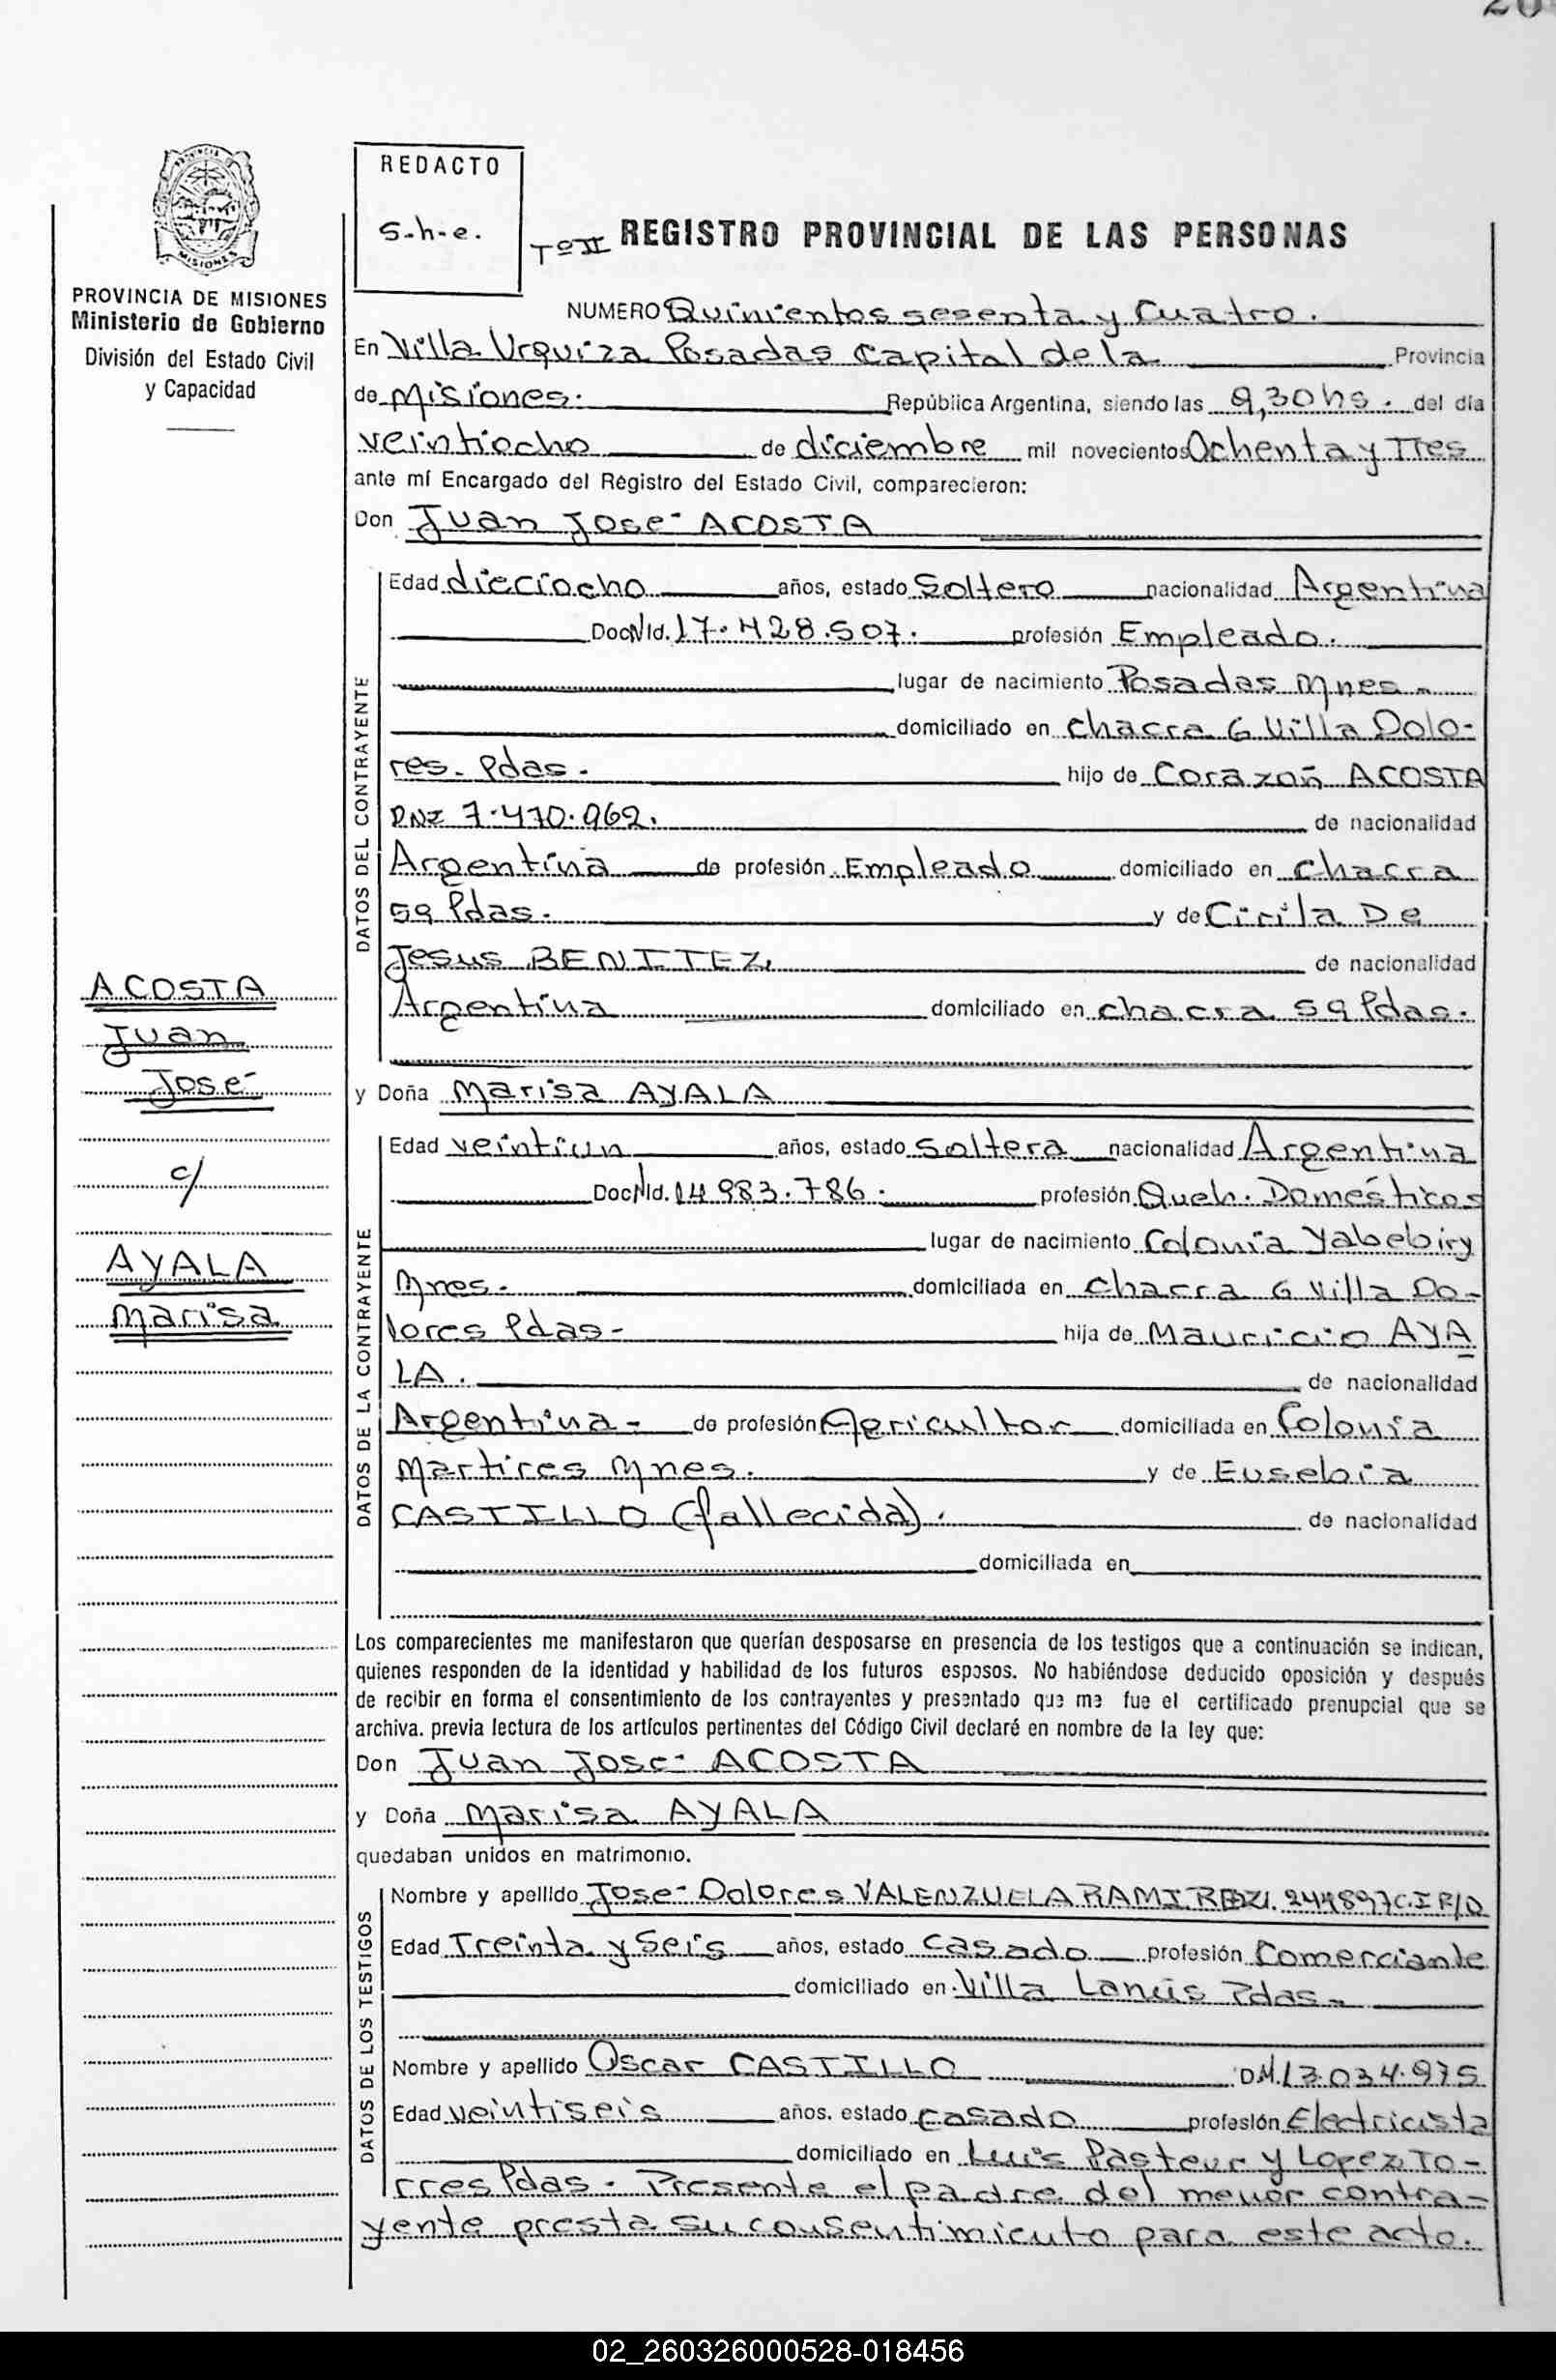 20
REDACTO
S-h-e.
Tº II REGISTRO PROVINCIAL DE LAS PERSONAS
PROVINCIA DE MISIONES
Ministerio de Gobierno
División del Estado Civil
y Capacidad
NUMERO Quinientos sesenta y Cuatro.
En Villa Urquiza Posadas Capital de la Provincia
de Misiones. República Argentina, siendo las 9,30 hs. del día
veintiocho de diciembre mil novecientos Ochenta y Tres
ante mí Encargado del Registro del Estado Civil, comparecieron:
Don Juan José ACOSTA
DATOS DEL CONTRAYENTE
Edad dieciocho años, estado Soltero nacionalidad Argentina
Doc. N Id. 17.428.507. profesión Empleado.
lugar de nacimiento Posadas Mnes.
domiciliado en chacra 6 Villa Dolo-
res. Pdas. hijo de Corazón ACOSTA
DNI 7.470.962. de nacionalidad
Argentina de profesión Empleado domiciliado en chacra
59 Pdas. y de Cirila De
Jesus BENITEZ, de nacionalidad
Argentina domiciliado en chacra 59 Pdas.
ACOSTA
Juan
José
c/
AYALA
Marisa
y Doña Marisa AYALA
DATOS DE LA CONTRAYENTE
Edad veintiun años, estado soltera nacionalidad Argentina
Doc N Id. 14.983.786. profesión Queh. Domésticos
lugar de nacimiento Colonia Yabebiry
Mnes. domiciliada en chacra 6 Villa Do-
lores Pdas- hija de Mauricio AYA
LA. de nacionalidad
Argentina- de profesión Agricultor domiciliada en Colonia
Martires Mnes. y de Eusebia
CASTILLO (fallecida). de nacionalidad
domiciliada en
Los comparecientes me manifestaron que querían desposarse en presencia de los testigos que a continuación se indican,
quienes responden de la identidad y habilidad de los futuros esposos. No habiéndose deducido oposición y después
de recibir en forma el consentimiento de los contrayentes y presentado que me fue el certificado prenupcial que se
archiva. previa lectura de los artículos pertinentes del Código Civil declaré en nombre de la ley que:
Don Juan José ACOSTA
y Doña Marisa AYALA
quedaban unidos en matrimonio.
DATOS DE LOS TESTIGOS
Nombre y apellido José Dolores VALENZUELA RAMIREZ. 244897 C.I
Edad Treinta y Seis años, estado casado profesión Comerciante
domiciliado en Villa Lanús Pdas-
Nombre y apellido Oscar CASTILLO D.M. 13.034.975
Edad veintiseis años. estado casado profesión Electricista
domiciliado en Luis Pasteur y Lopez To-
rres Pdas. Presente el padre del menor contra-
yente presta su consentimiento para este acto.
02_260326000528-018456